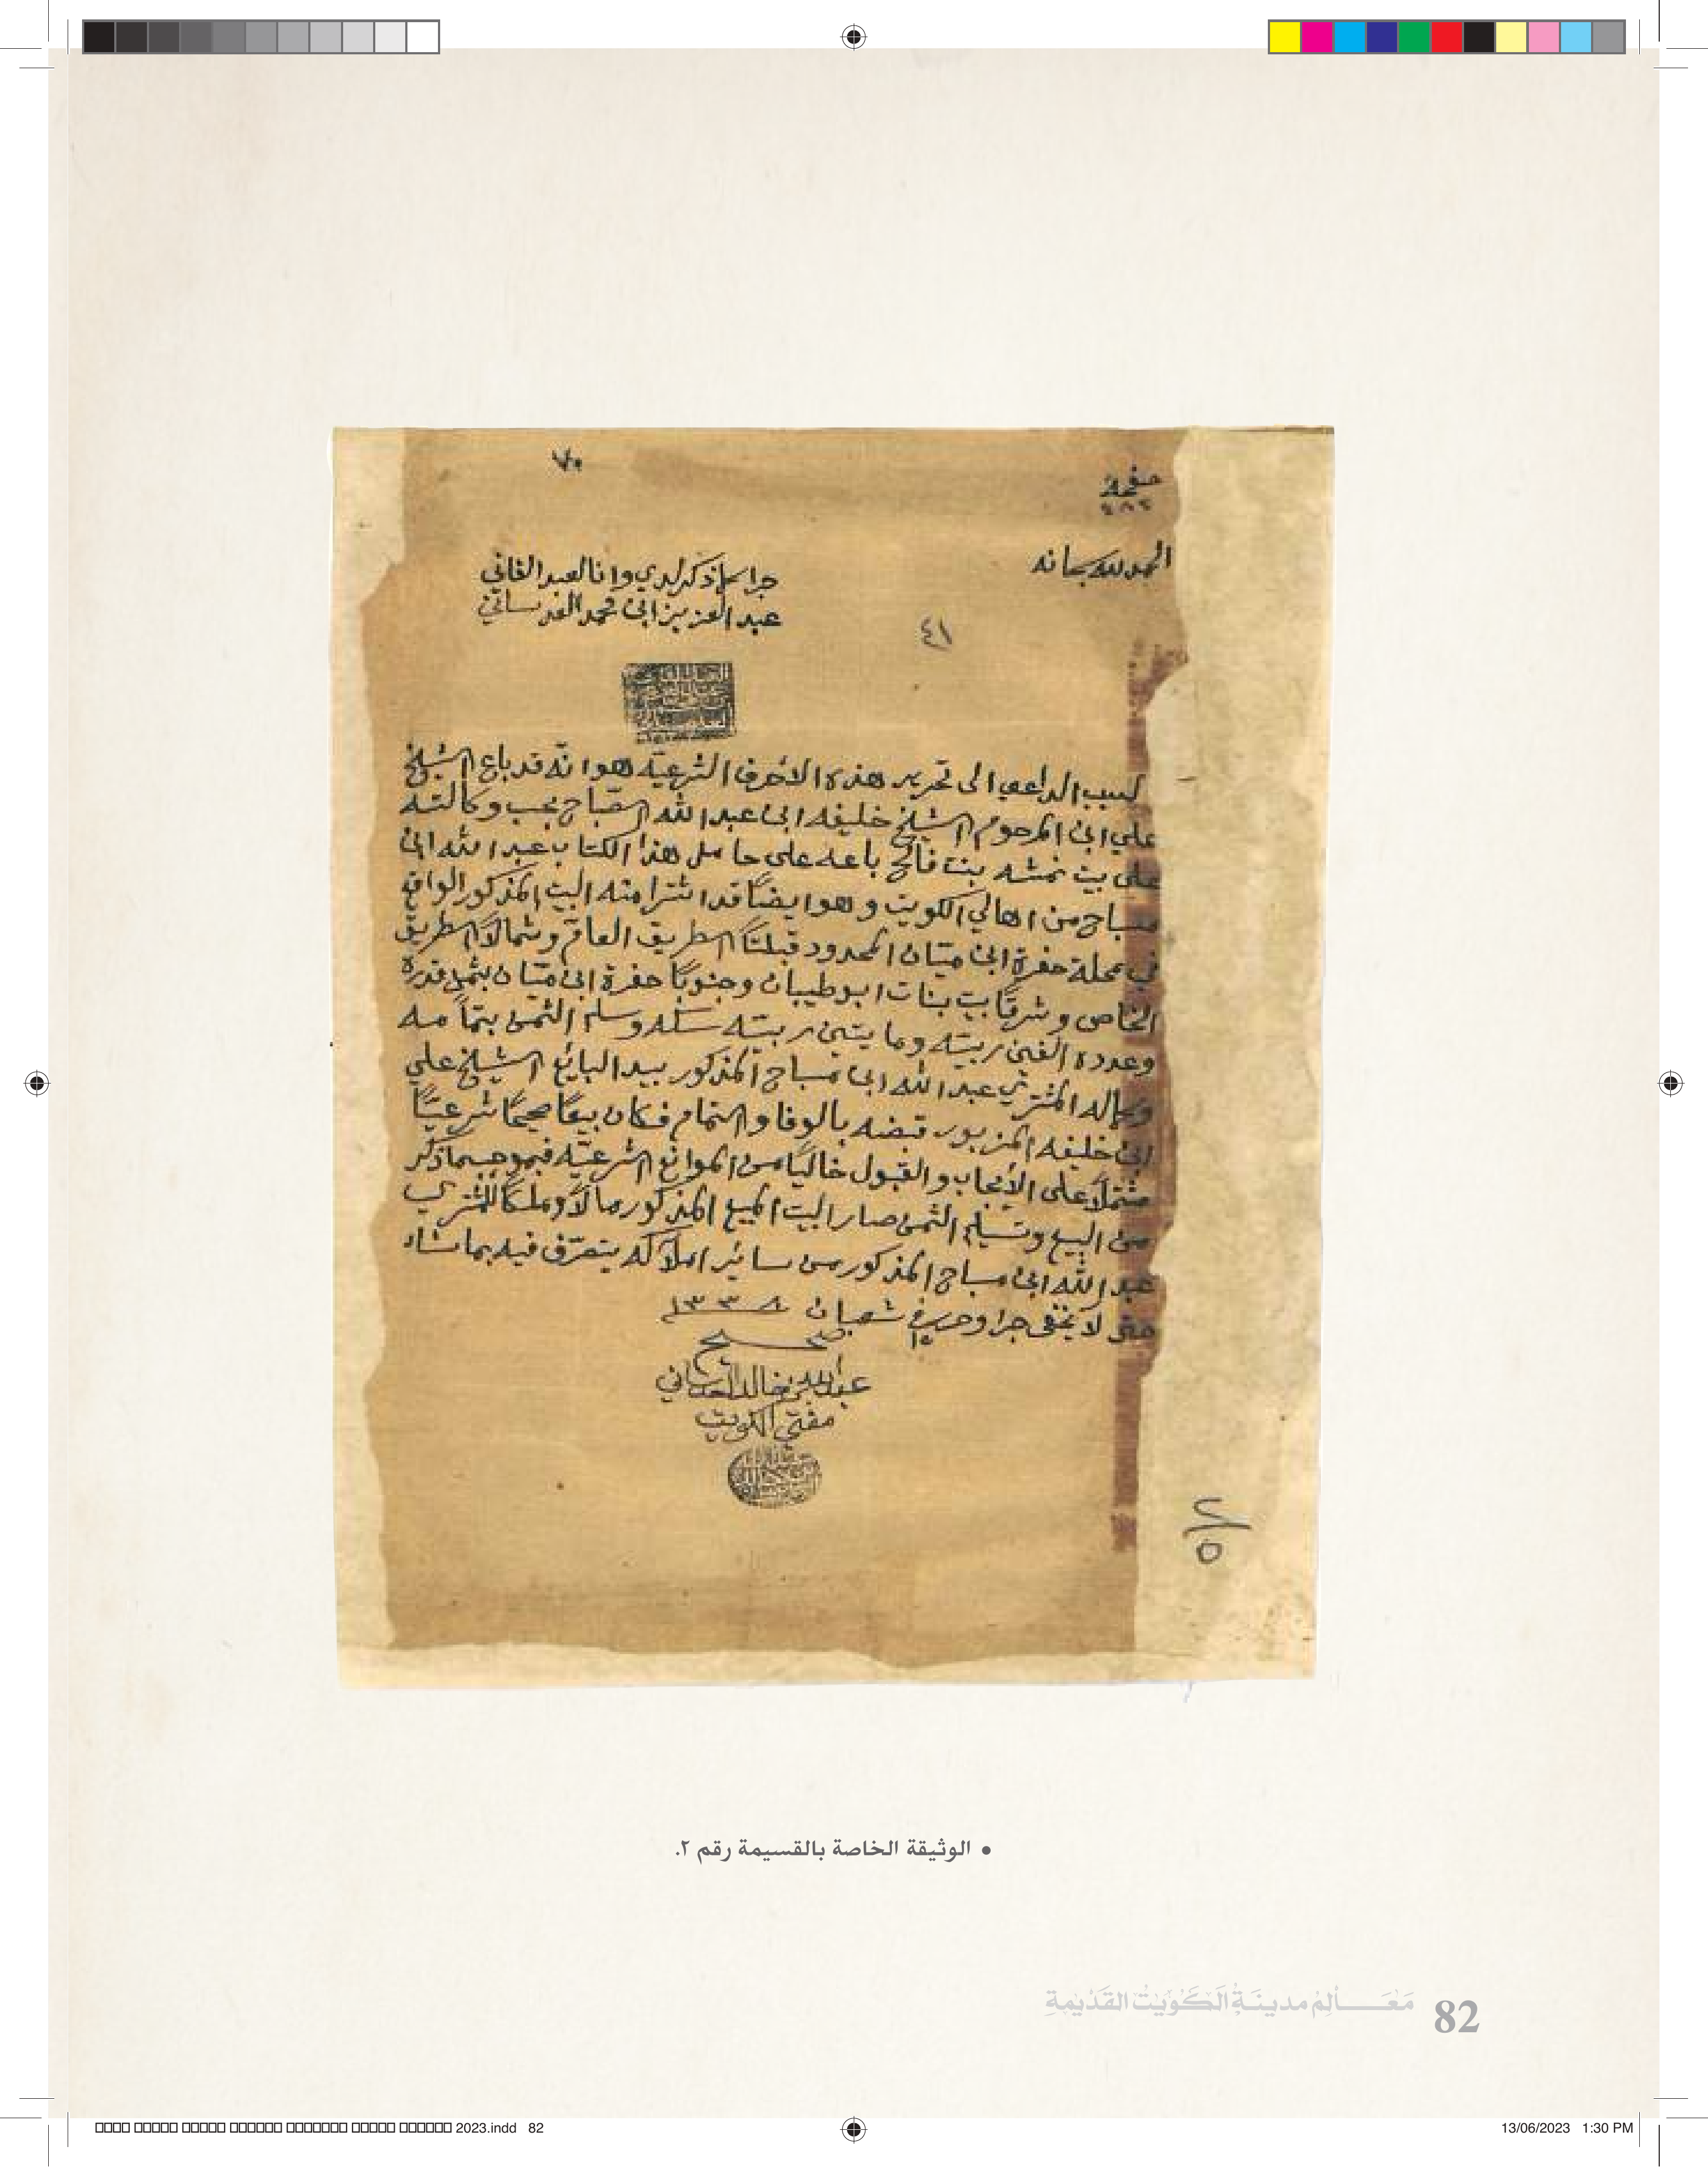 ٧٠
صفحة
٢٨٢
الحمد لله سبحانه
جرا ما ذكر لدي وانا العبد الفاني
عبد العزيز ابن محمد العدساني
٤١
السبب الداعي الى تحرير هذه الأحرف الشرعيّه هو انّه قد باع الشيخ
علي ابن المرحوم الشيخ خليفه ابن عبد الله الصّباح بحسب وكالته
على بيت نمشه بنت فالح باعه على حامل هذا الكتاب عبد الله ابن
مسباح من اهالي الكويت وهو ايضًا قد اشترا منه البيت المذكور الواقع
في محلة حفرة ابن ميتان المحدود قبلتًا الطريق العام وشمالًا الطريق
الخاص وشرقًا بيت بنات ابو طيبان وجنوبًا حفرة ابن ميتان بثمن قدره
وعدده الفين ربيّه وما يتين ربيته وسلم الثمن بتمامه
المشتري عبد الله ابن مسباح المذكور بيد البايع الشيخ علي
ابن خليفه المزبور قبضه بالوفا والتمام فكان بيعًا صحيحًا شرعيًّا
مشتملًا على الأيجاب والقبول خاليًا من الموانع الشرعيّه فبموجب ما ذكر
من البيع وتسليم الثمن صار البيت المبيع المذكور مالًا وملكًا للمشتري
عبد الله ابن مسباح المذكور من سائر املاكه يتصرّف فيه بما شاء
حتى لا يخفى جرا وحرر في ١٥ شعبان ١٣٣٨
صحيح
عبدالله بن خالد العدساني
مفتي الكويت
٧/٥
• الوثيقة الخاصة بالقسيمة رقم ٢.
مَعَالِمُ مدينَةِ الكُوَيْت القَدْيمةِ
82
2023.indd 82
13/06/2023 1:30 PM